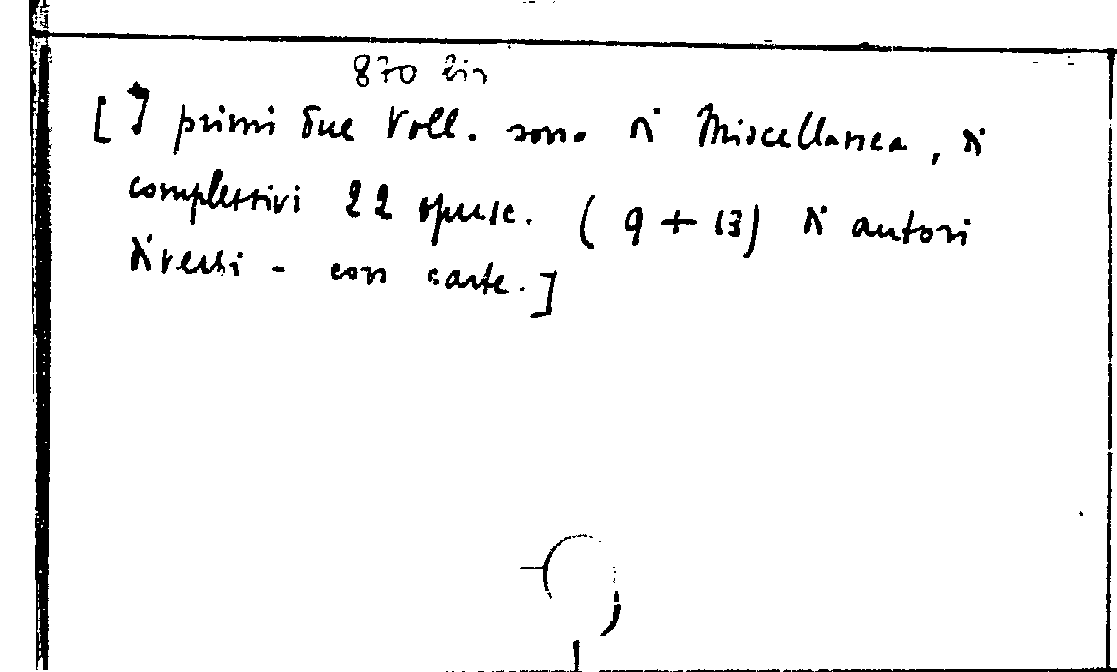 870 bis
[I primi due Voll. sono di Miscellanea, di
complessivi 22 opusc. (9 + 13) di autori
diversi - con carte.]